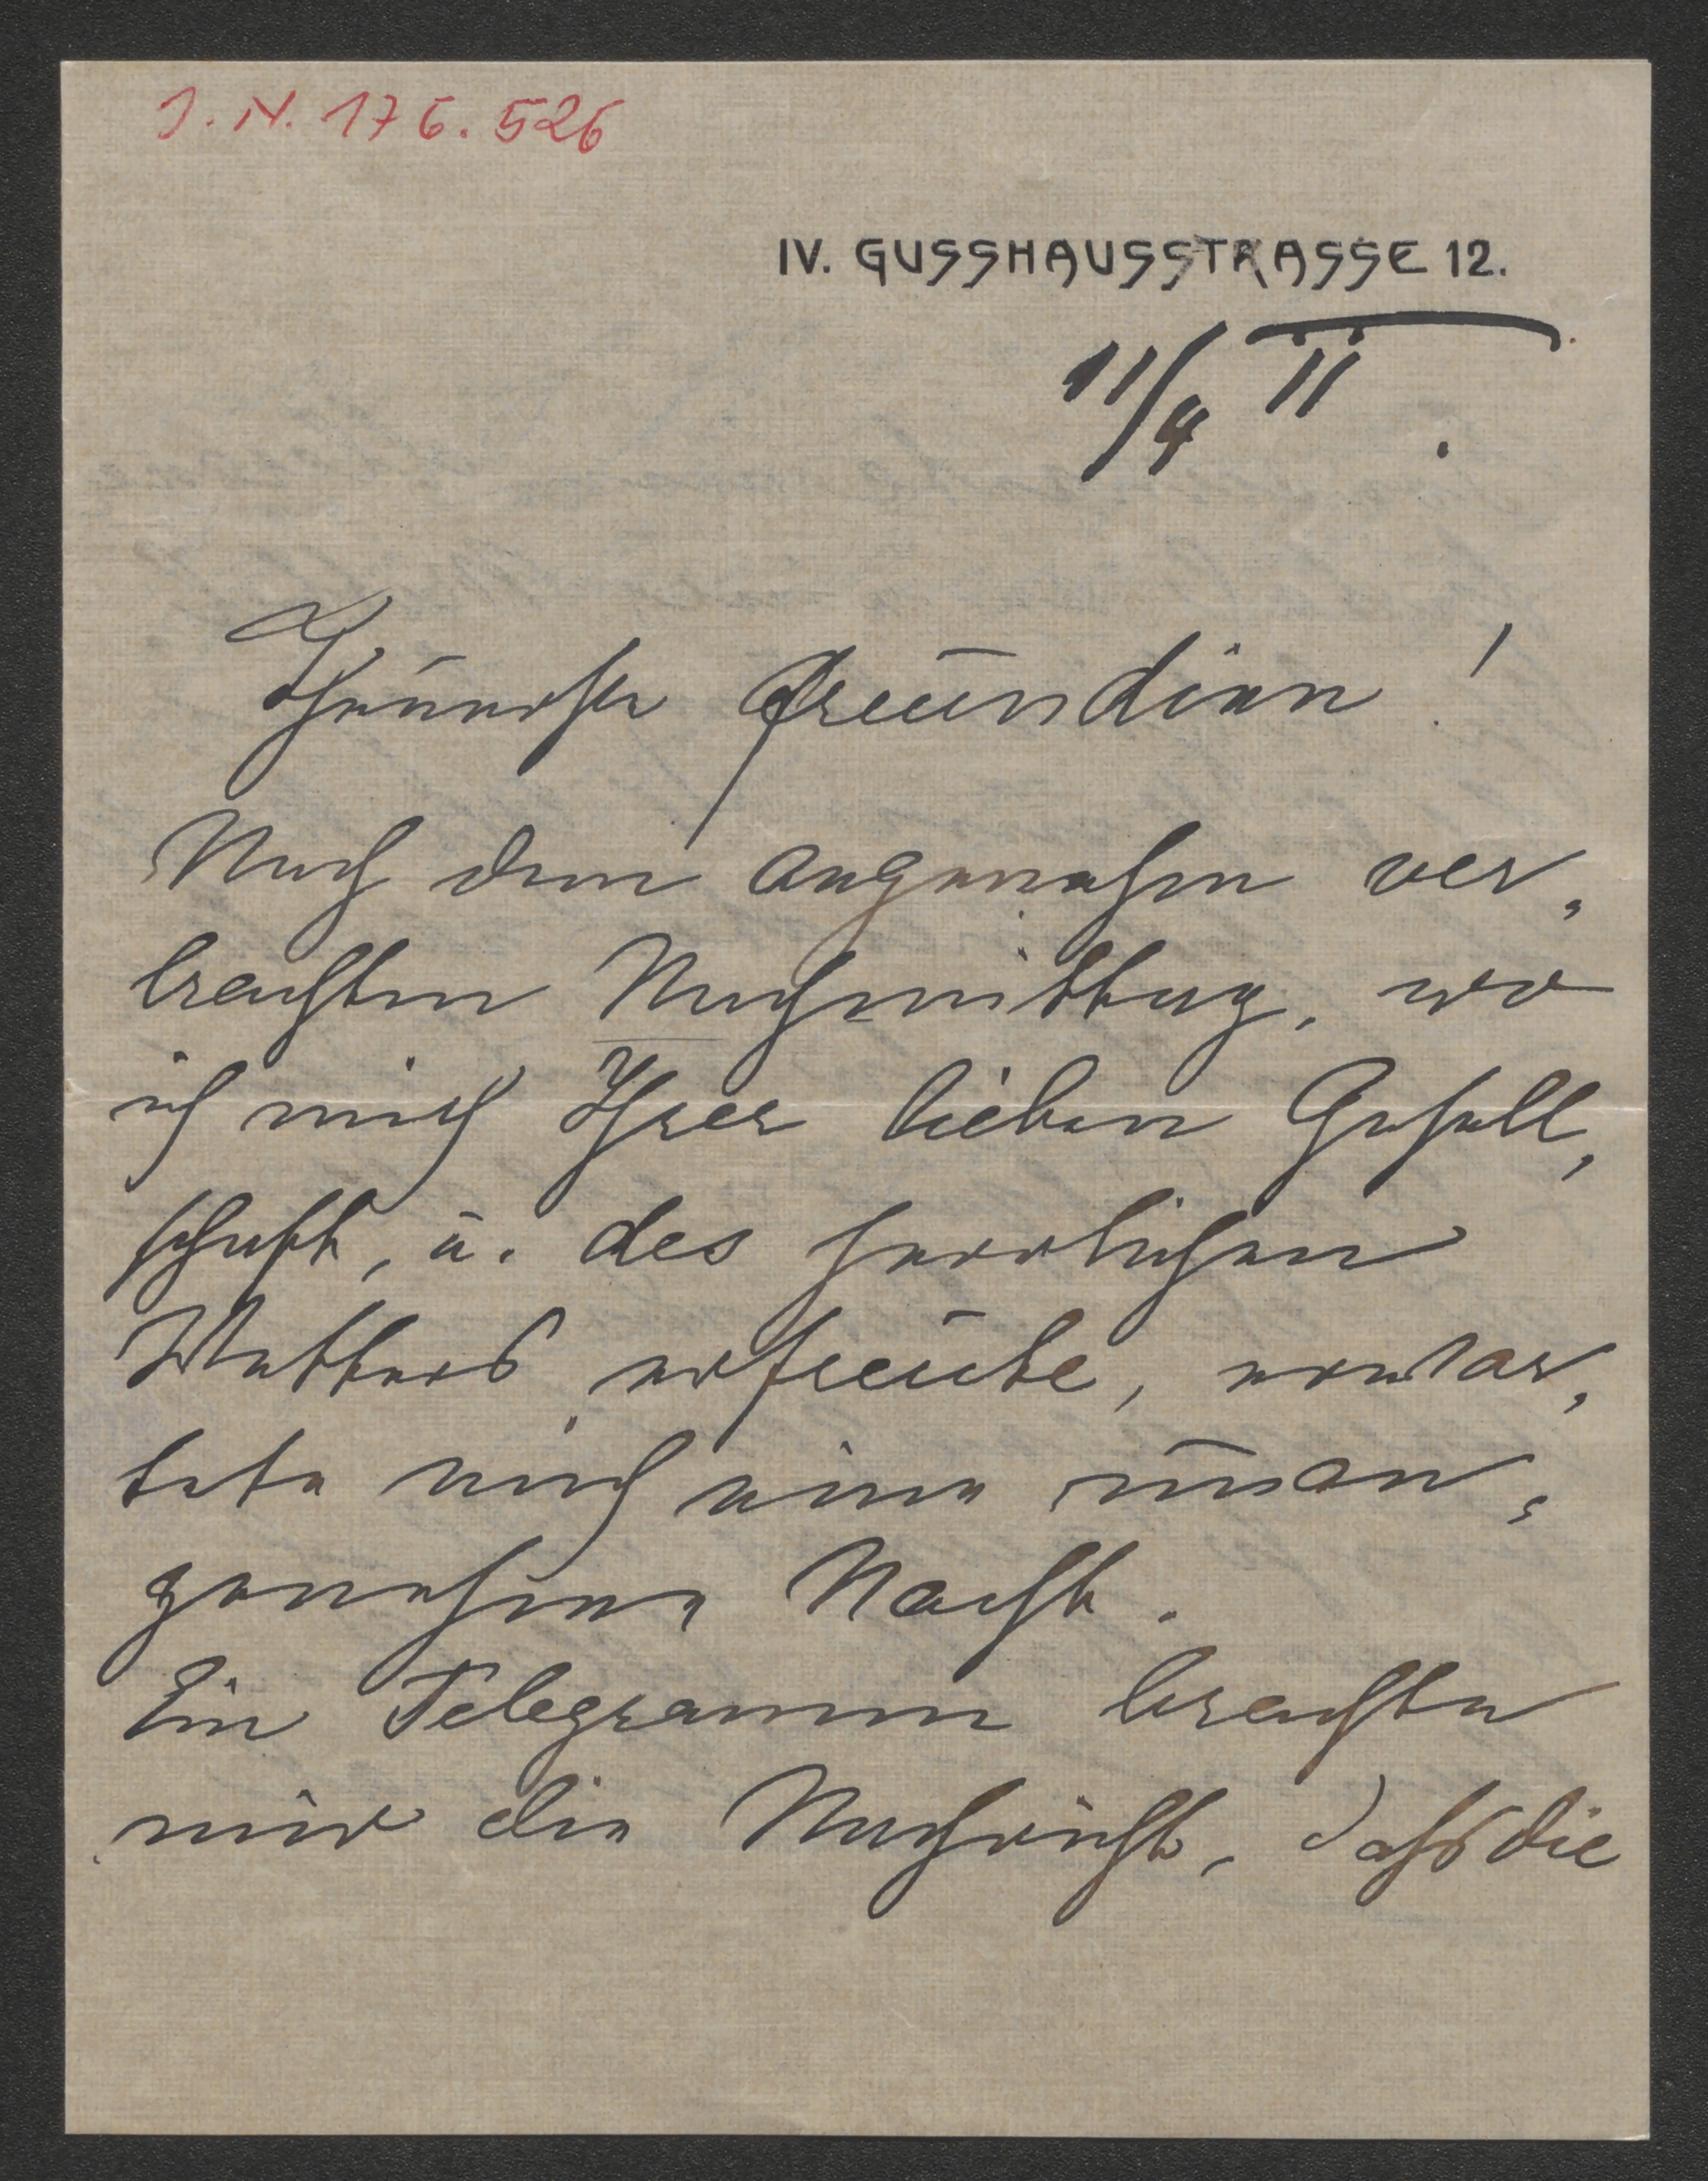 J. N. 176.526
IV. GUSSHAUSSTRASSE 12.
11/4 11.
Theuerste Freundinn!
Nach dem angenehm ver,
brachten Nachmittag, wo
ich mich Ihrer lieben Gesell,
schaft, u. des herrlichen
Wetters erfreute, erwar,
tete mich eine unan,
genehme Nacht.
Ein Telegramm brachte
mir die Nachricht, dass die